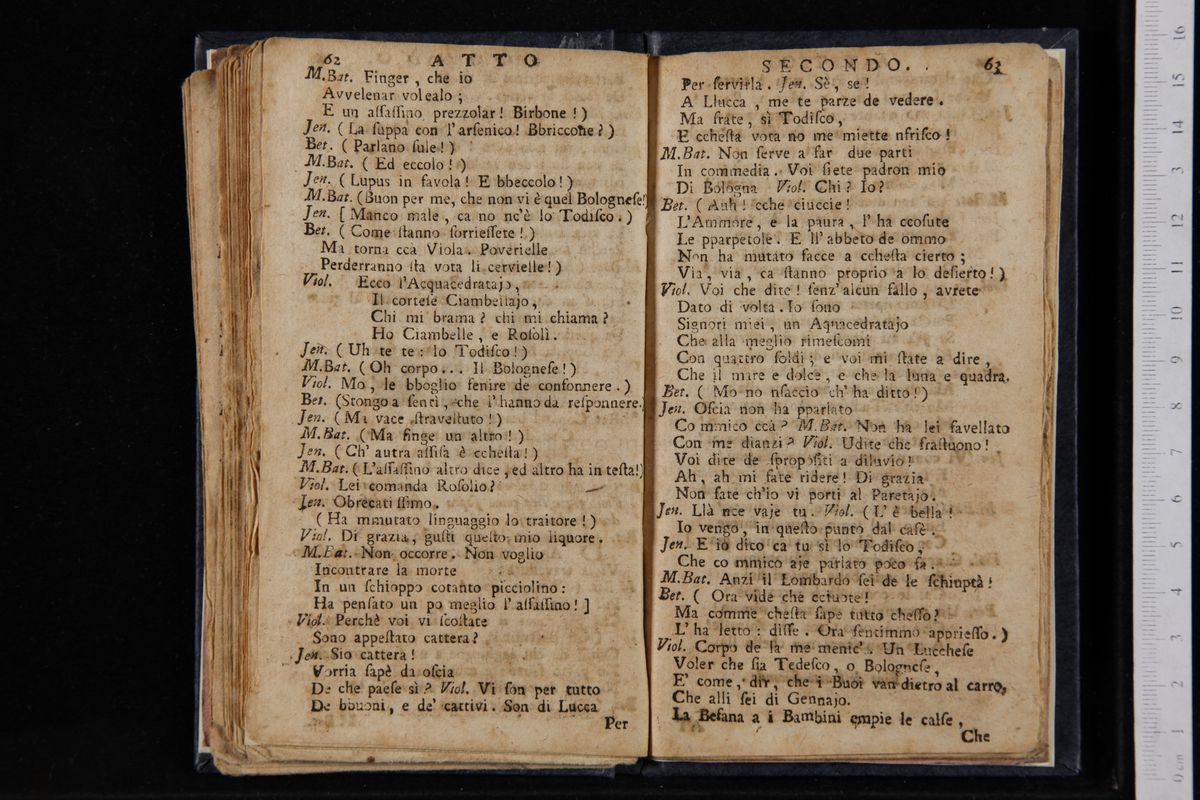 62 ATTO
M.Bat. Finger, che io
Avvelenar volealo;
E un aſſaſſino prezzolar! Birbone!)
Jen. (La ſuppa con l'arſenico! Bbriccone?)
Bet. (Parlano ſule!)
M.Bat. (Ed eccolo!)
Jen. (Lupus in favola! E bbeccolo!)
M.Bat. (Buon per me, che non vi è quel Bologneſe!)
Jen. [Manco male, ca no nc'è lo Todiſco.)
Bet. (Come ſtanno ſorrieſſete!)
Ma torna ccà Viola. Poverielle
Perderranno ſta vota li cervielle!)
Viol. Ecco l'Acquacedratajo,
Il corteſe Ciambellajo,
Chi mi brama? chi mi chiama?
Ho Ciambelle, e Roſolì.
Jen. (Uh te te: lo Todiſco!)
M.Bat. (Oh corpo... Il Bologneſe!)
Viol. Mo, le bboglio fenire de confonnere.)
Bet. (Stongo a ſentì, che l'hanno da reſponnere.)
Jen. (Mi vace ſtraveſtuto!)
M.Bat. (Ma finge un altro!)
Jen. (Ch' autra aſſiſa è ccheſta!)
M.Bat. (L'aſſaſſino altro dice, ed altro ha in teſta!)
Viol. Lei comanda Roſolio?
Jen. Obrecatiſſimo.
(Ha mmutato linguaggio lo traitore!)
Viol. Di grazia, guſti queſto mio liquore.
M.Bat. Non occorre. Non voglio
Incontrare la morte
In un ſchioppo cotanto picciolino:
Ha penſato un po meglio l'aſſaſſino!]
Viol. Perchè voi vi ſcoſtate
Sono appeſtato cattera?
Jen. Sio cattera!
Vorria ſapè da oſcia
De che paeſe sì? Viol. Vi ſon per tutto
De bbuoni, e de' cattivi. Son di Lucca
Per
SECONDO. 63
Per ſervirla. Jen. Sè, se!
A Llucca, me te parze de vedere.
Ma frate, sì Todiſco,
E ccheſta vota no me miette nfriſco!
M.Bat. Non ſerve a far due parti
In commedia. Voi ſiete padron mio
Di Bologna Viol. Chi? Io?
Bet. (Auh! cche ciuccie!
L'Ammore, e la paura, l'ha ccoſute
Le pparpetole. E ll'abbeto de ommo
Non ha mutato facce a ccheſta cierto;
Via, via, ca ſtanno proprio a lo deſierto!)
Viol. Voi che dite! ſenz'alcun fallo, avrete
Dato di volta. Io ſono
Signori miei, un Aqnacedratajo
Che alla meglio rimeſcomi
Con quattro ſoldi; e voi mi ſtate a dire,
Che il mare e dolce, e che la luna e quadra.
Bet. (Mo no nſaccio ch'ha ditto!)
Jen. Oſcia non ha pparlato
Co mmico ccà? M.Bat. Non ha lei favellato
Con me dianzi? Viol. Udite che fraſtuono!
Voi dite de ſpropoſiti a diluvio!
Ah, ah mi fate ridere! Di grazia
Non fate ch'io vi porti al Paretajo.
Jen. Llà nce vaje tu. Viol. (L'è bella!
Io vengo, in queſto punto dal cafè.
Jen. E io dico ca tu sì lo Todiſco,
Che co mmico aje parlato poco fa.
M.Bat. Anzi il Lombardo ſei de le ſchiuptà!
Bet. (Ora vide che cciuote!
Ma comme cheſta ſape tutto cheſſo?
L'ha letto: diſſe. Ora ſentimmo apprieſſo.)
Viol. Corpo de la me menic'. Un Luccheſe
Voler che ſia Tedeſco, o Bologneſe,
E' come, dir, che i Buoi van dietro al carro,
Che alli ſei di Gennajo.
La Befana a i Bambini empie le calſe,
Che